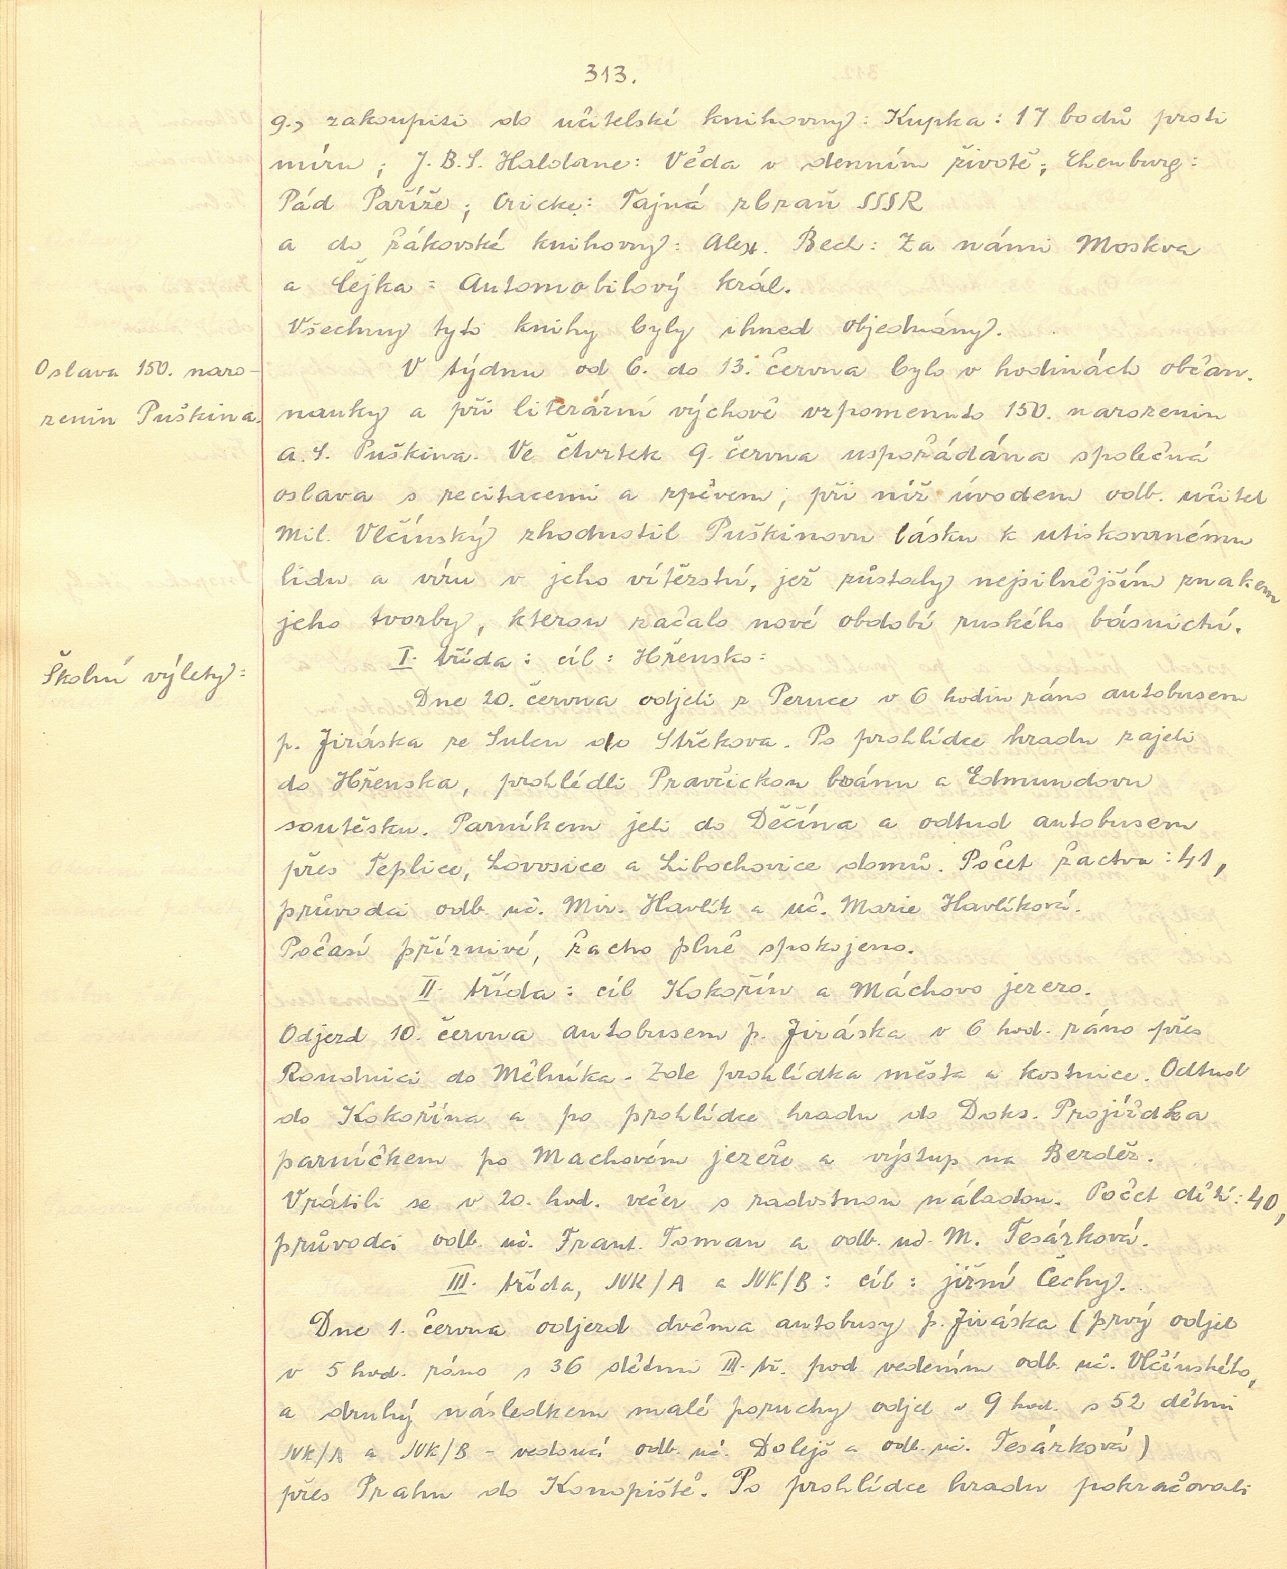 313.
9., zakoupiti do učitelské knihovny: Kupka: 17 bodů proti
míru; J.B.S. Haldane: Věda v denním životě; Ehenburg:
Pád Paříže; Cricke: Tajná zbraň SSSR
a do žákovské knihovny: Alex. Bech: Za námi Moskva
a Čejka: Automobilový král.
Všechny tyto knihy byly ihned objednány.
Oslava 150. naro-
zenin Puškina.
V týdnu od 6. do 13. června bylo v hodinách občan.
nauky a při literární výchově vzpomenuto 150. narozenin
A.S. Puškina. Ve čtvrtek 9. června uspořádána společná
oslava s recitacemi a zpěvem, při níž úvodem odb. učitel
Mil. Vlčínský zhodnotil Puškinovu lásku k utiskovanému
lidu a víru v jeho vítězství, jež zůstaly nejsilnějším znakem
jeho tvorby, kterou začalo nové období ruského básnictví.
Školní výlety:
I. třída: cíl: Hřensko:
Dne 20. června odjeli z Peruce v 6 hodin ráno autobusem
p. Jiráska ze Sulce do Střekova. Po prohlídce hradu zajeli
do Hřenska, prohlédli Pravčickou bránu a Edmundovu
soutěsku. Parníkem jeli do Děčína a odtud autobusem
přes Teplice, Lovosice a Libochovice domů. Počet žactva: 41,
průvodci odb. uč. Mir. Havlík a uč. Marie Havlíková.
Počasí příznivé, žactvo plně spokojeno.
II. třída: cíl Kokořín a Máchovo jezero.
Odjezd 10. června autobusem p. Jiráska v 6 hod. ráno přes
Roudnici do Mělníka. Zde prohlídka města a kostnice. Odtud
do Kokořína a po prohlídce hradu do Doks. Projížďka
parníčkem po Machovém jezeře a výstup na Bezděz.
Vrátili se v 20. hod. večer s radostnou náladou. Počet dětí: 40,
průvodci odb. uč. Frant. Toman a odb. uč. M. Tesárková.
III. třída, JVK/A a JVK/B: cíl: jižní Čechy.
Dne 1. června odjezd dvěma autobusy p. Jiráska (prvý odjel
v 5 hod. ráno s 36 dětmi III. tř. pod vedením odb. uč. Vlčínského,
a druhý následkem malé poruchy odjel v 9 hod. s 52 dětmi
JVK/A a JVK/B - vedoucí odb. uč. Dolejš a odb. uč. Tesárková)
přes Prahu do Konopiště. Po prohlídce hradu pokračovali